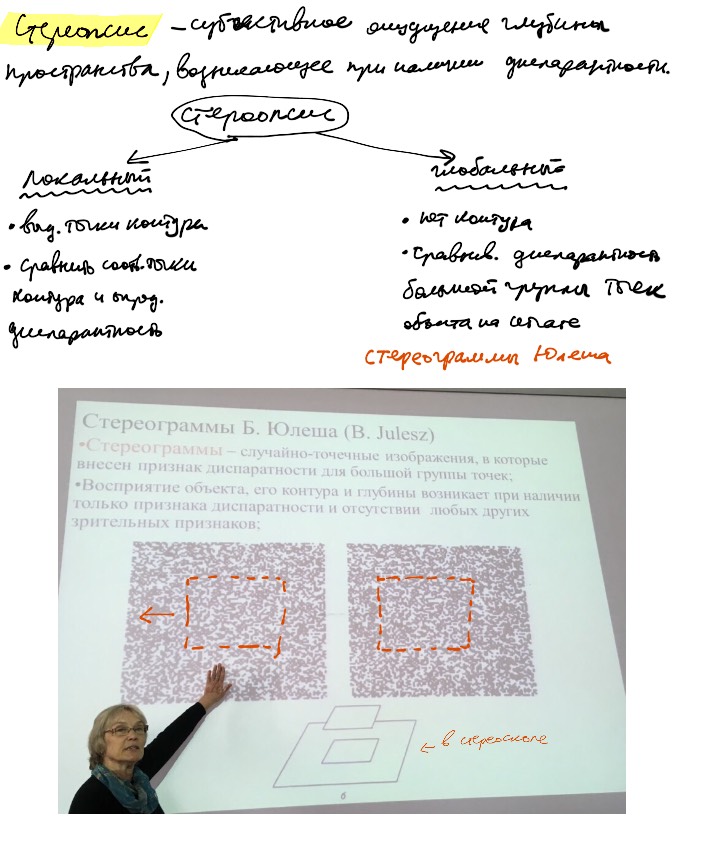 Стереопсис – субъективное ощущение глубины
пространства, возникающее при наличии диспарантности.
стереопсис
локальный
глобальный
• выд. точки контура
• сравнить соотв. точки
контура и опред.
диспарантность
• нет контура
• Сравнив. диспарантность
большой группы точек
объекта на сетчатке
стереограммы Юлеша
Стереограммы Б. Юлеша (B. Julesz)
•Стереограммы – случайно-точечные изображения, в которые
внесен признак диспаратности для большой группы точек;
•Восприятие объекта, его контура и глубины возникает при наличии
только признака диспаратности и отсутствии любых других
зрительных признаков;
← в стереоскопе
6